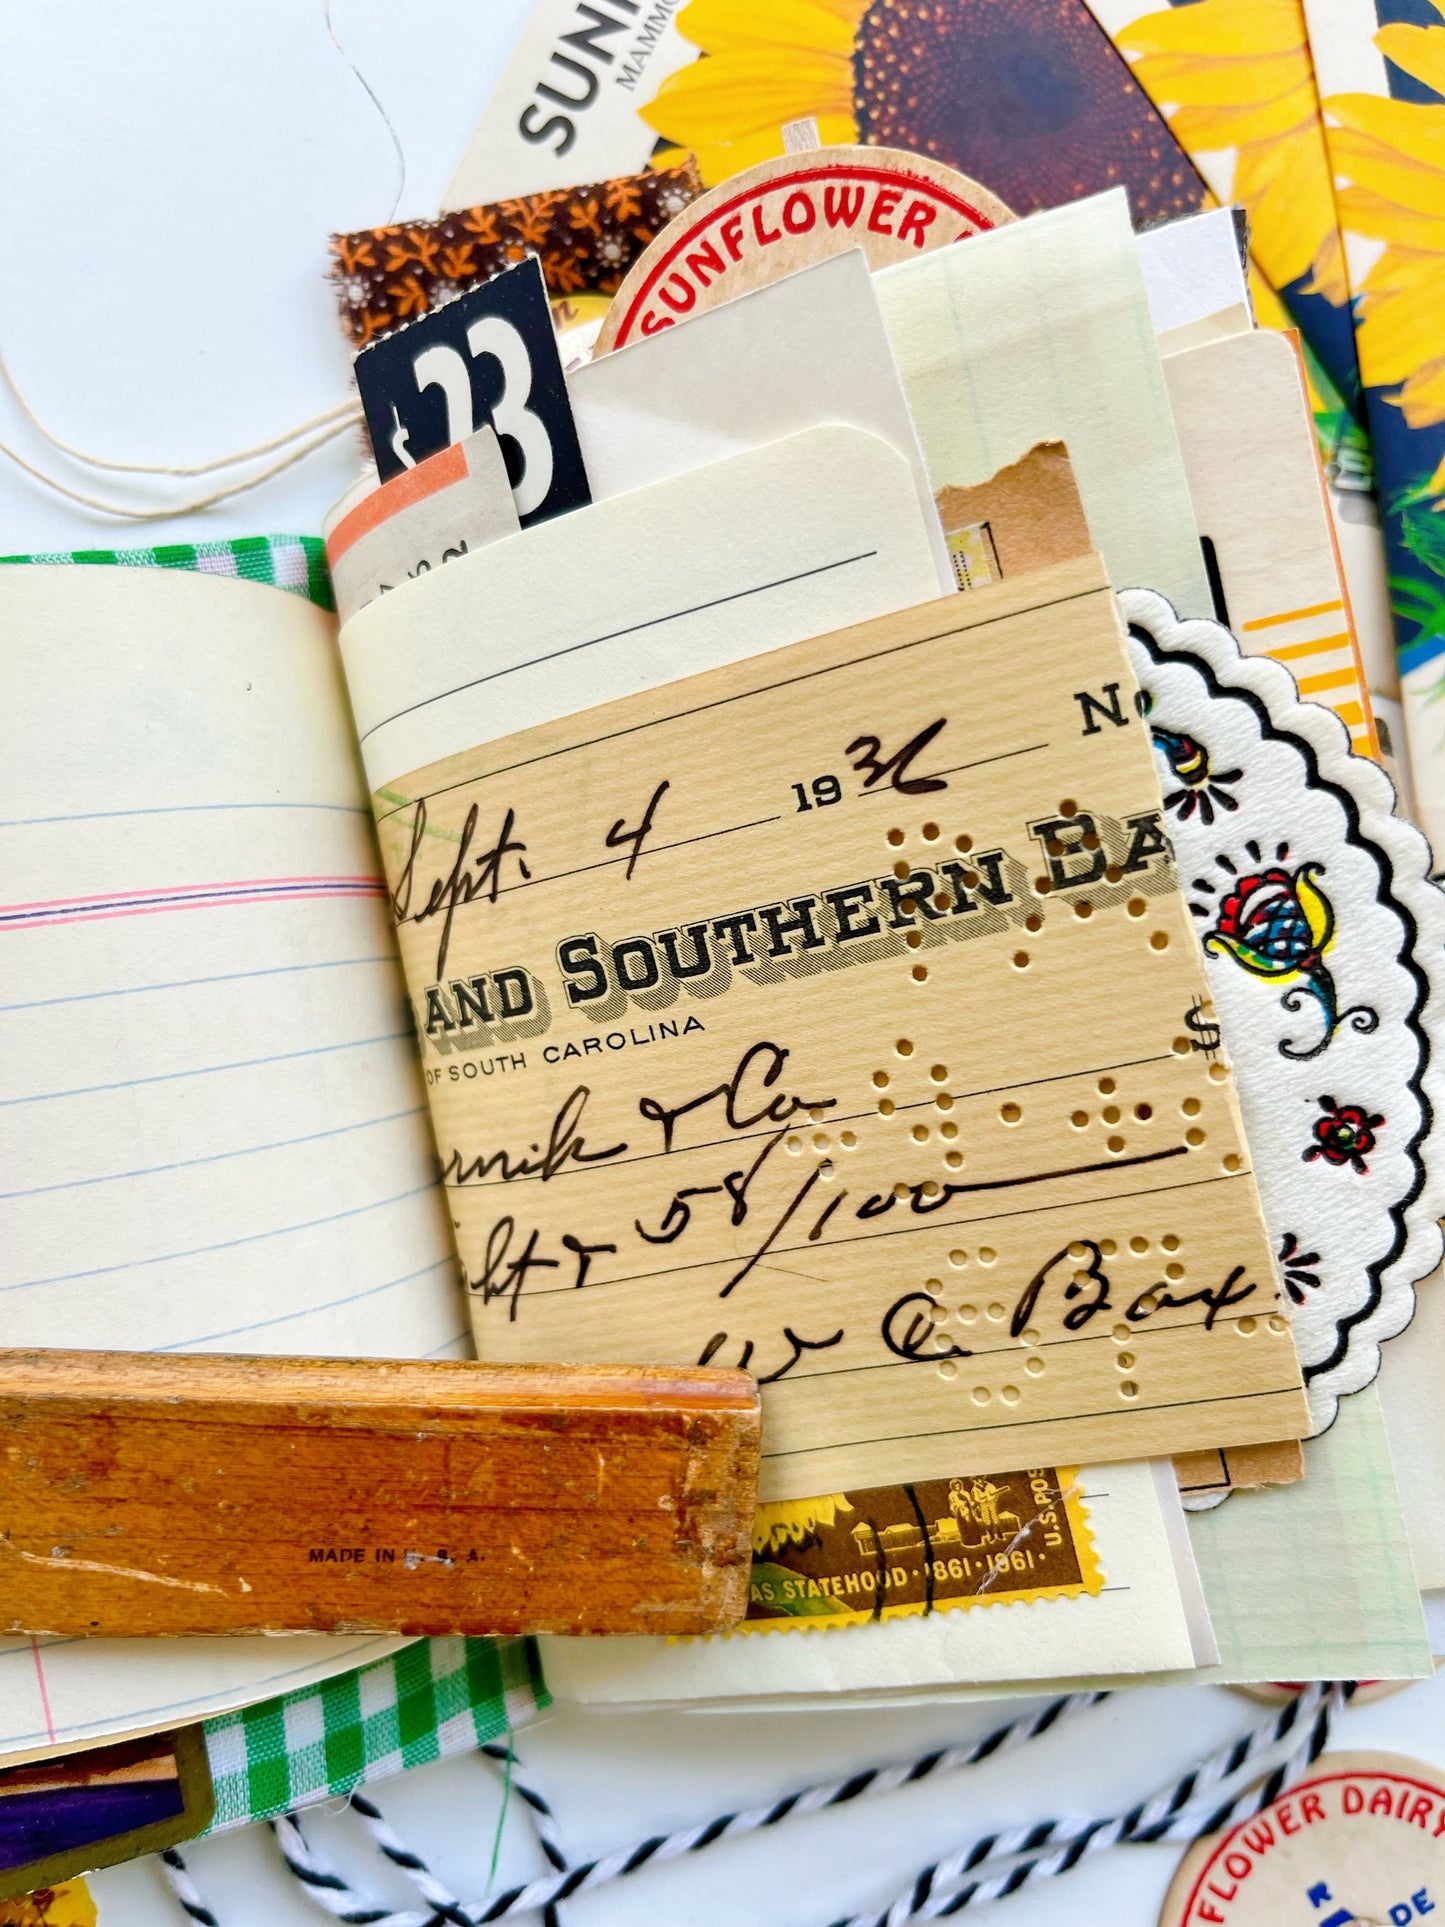 SUN
MAMMO
SUNFLOWER
23
Sept. 4 1936 No
AND SOUTHERN BA
OF SOUTH CAROLINA
$
& Co
ht & 58/100
W Q Bax
MADE IN U. S. A.
AS STATEHOOD·1861·1961·
U.S.POS
FLOWER DAIRY
R
DE